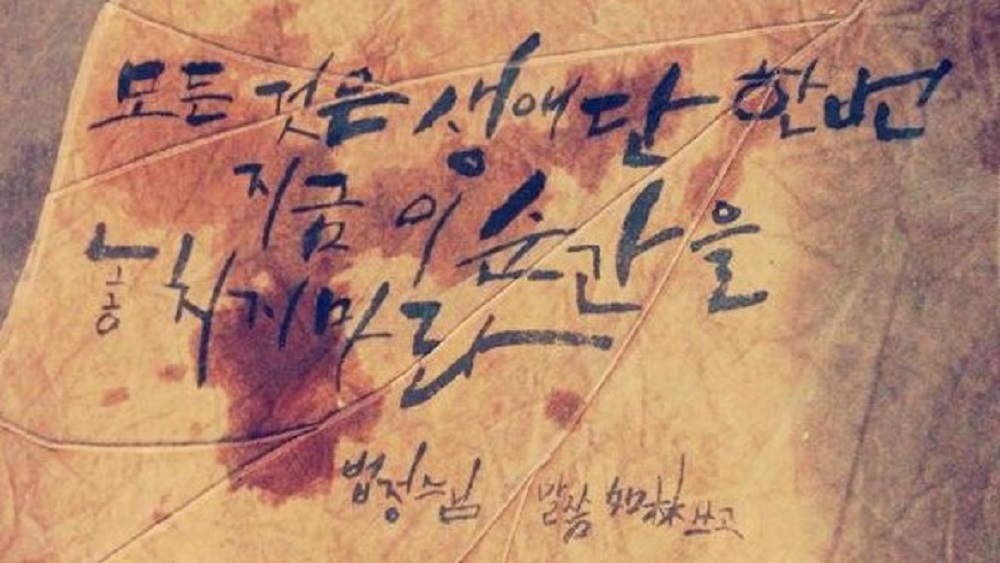 모든 것은 생애 단 한번
지금 이 순간을
놓치지마라
법정스님 말씀 쓰고